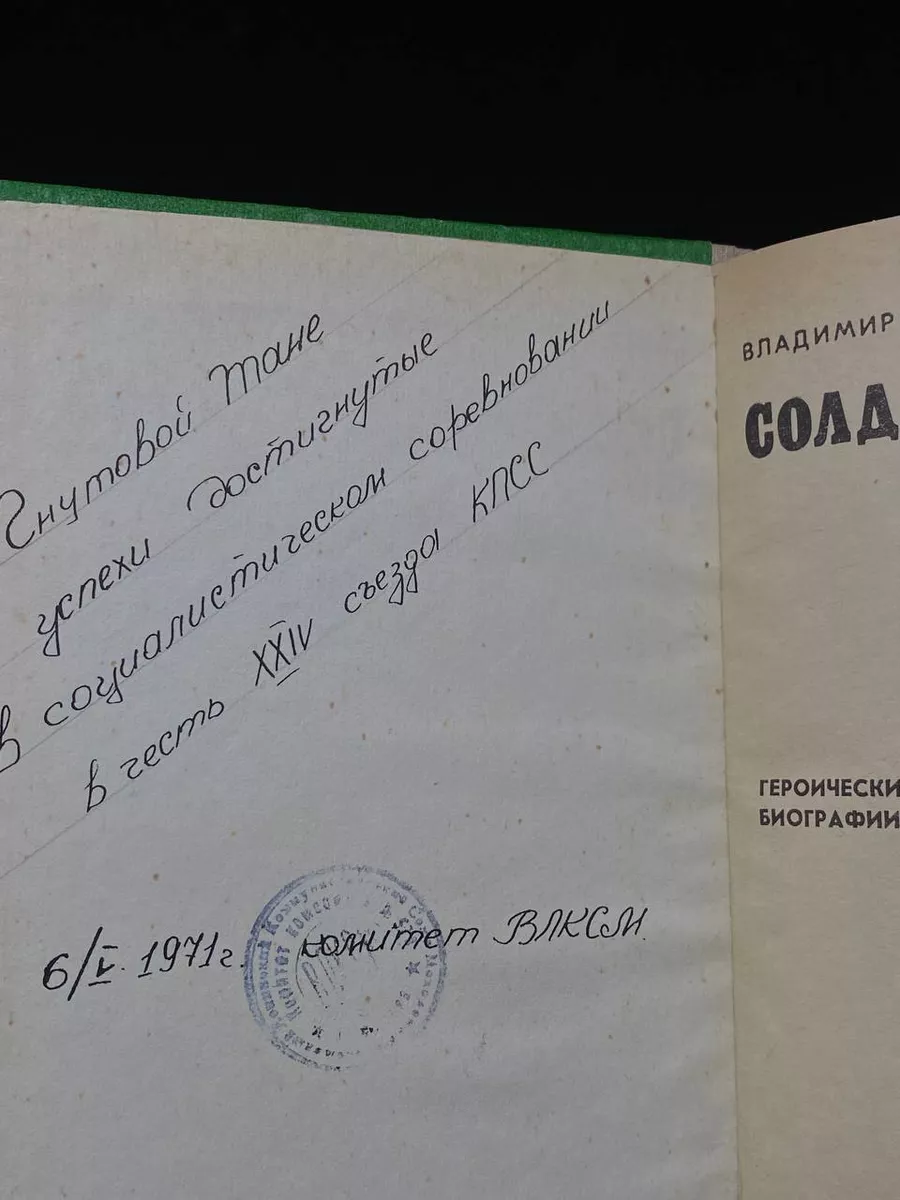 Гнутовой Тане
успехи достигнутые
в социалистическом соревновании
в честь XXIV съезда КПСС
6/V. 1971г. комитет ВЛКСМ.
Комитет комсо
Коммунистический Союз Молодежи
ВЛАДИМИР
СОЛД
ГЕРОИЧЕСКИ
БИОГРАФИИ